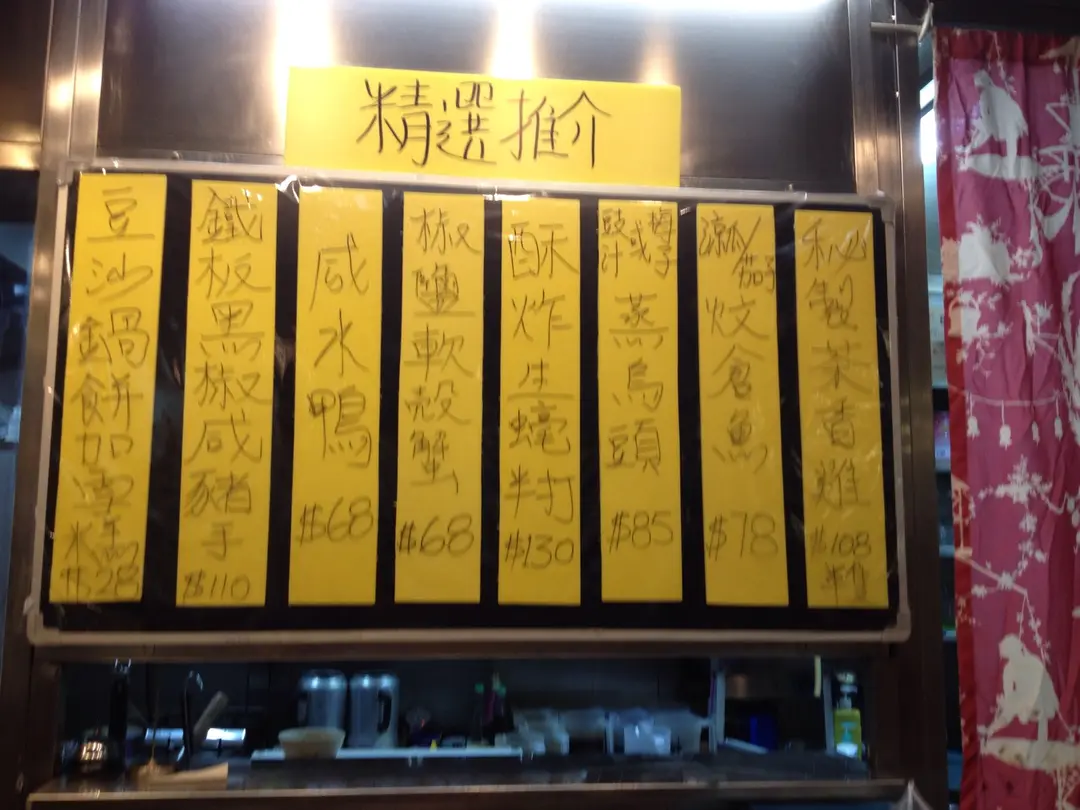 精選推介
秘製茶香雞 $108
涼瓜/茄子炆倉魚 $78
豉汁或梅子蒸烏頭 $85
酥炸生蠔半打 $130
椒鹽軟殼蟹 $68
咸水鴨 $68
鐵板黑椒咸豬手 $110
豆沙鍋餅加雪糕 $28